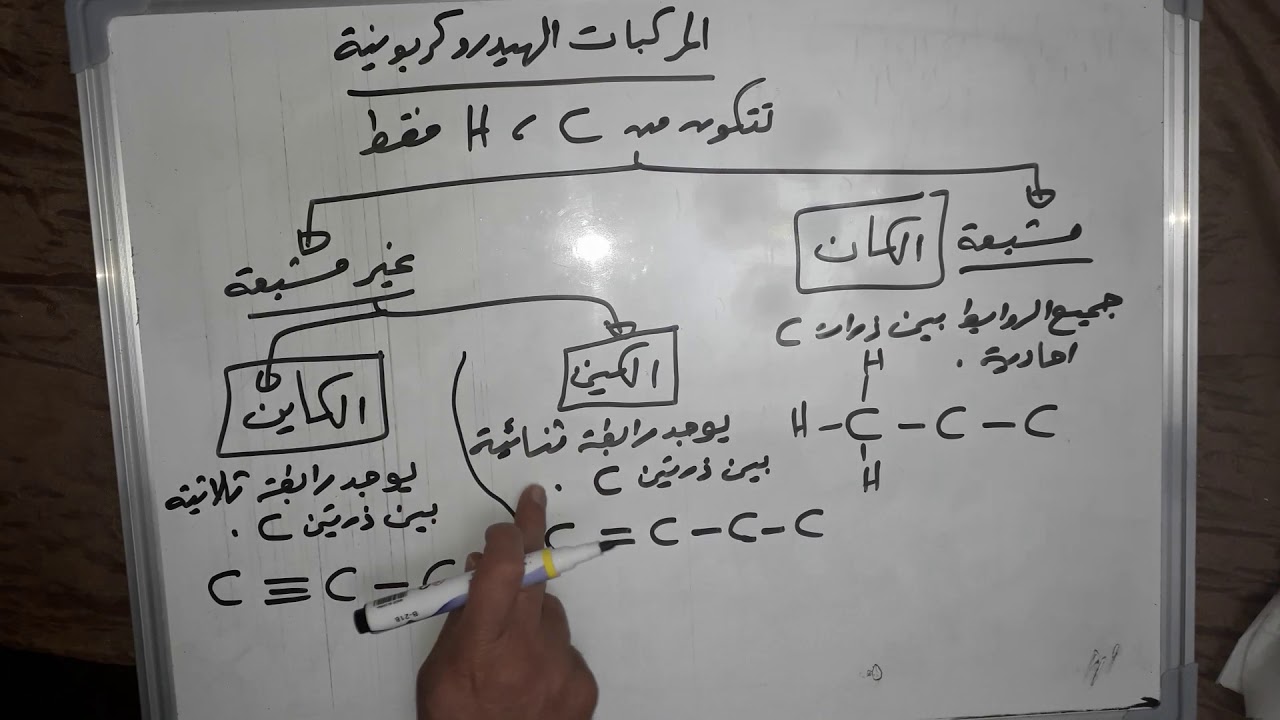 المركبات الهيدروكربونية
تتكون من C ، H فقط
مشبعة
الكان
جميع الروابط بين ذرات C
احادية .
H
H – C – C – C
H
غير مشبعة
الكين
يوجد رابطة ثنائية
بين ذرتين C .
C = C – C – C
الكاين
يوجد رابطة ثلاثية
بين ذرتين C .
C ≡ C – C
B-218